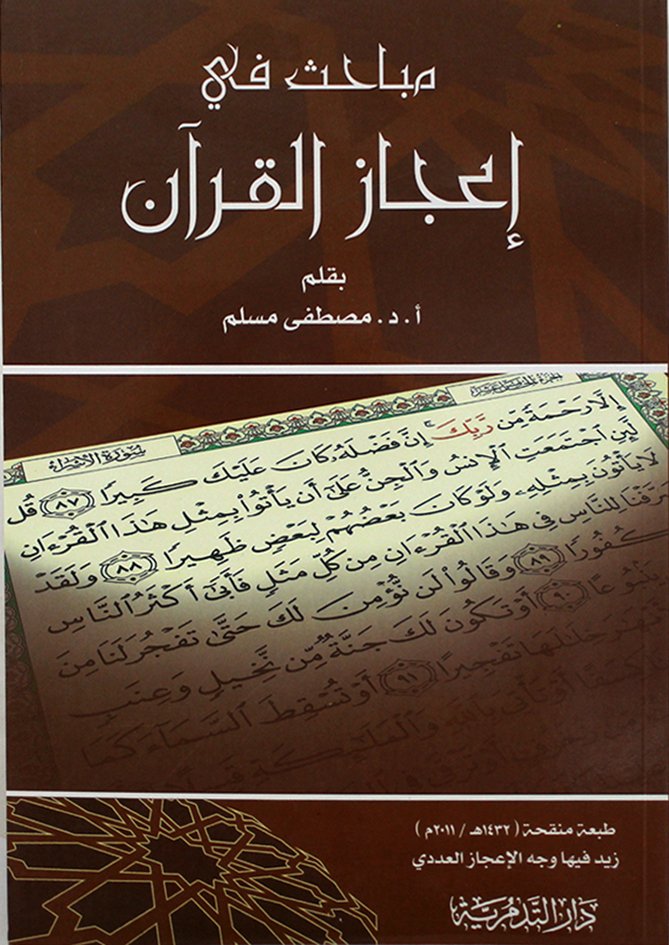 مباحث في
إعجاز القرآن
بقلم
أ.د. مصطفى مسلم
سورة الإسراء
إِلَّا رَحْمَةً مِّن رَّبِّكَ ۚ إِنَّ فَضْلَهُ كَانَ عَلَيْكَ كَبِيرًا ٨٧ قُل
لَّئِنِ ٱجْتَمَعَتِ ٱلْإِنسُ وَٱلْجِنُّ عَلَىٰٓ أَن يَأْتُوا۟ بِمِثْلِ هَٰذَا ٱلْقُرْءَانِ
لَا يَأْتُونَ بِمِثْلِهِ وَلَوْ كَانَ بَعْضُهُمْ لِبَعْضٍ ظَهِيرًا ٨٨ وَلَقَدْ
لِلنَّاسِ فِي هَٰذَا ٱلْقُرْءَانِ مِن كُلِّ مَثَلٍ فَأَبَىٰٓ أَكْثَرُ ٱلنَّاسِ
كُفُورًا ٨٩ وَقَالُوا۟ لَن نُّؤْمِنَ لَكَ حَتَّىٰ تَفْجُرَ لَنَا مِنَ
٩٠ أَوْ تَكُونَ لَكَ جَنَّةٌ مِّن نَّخِيلٍ وَعِنَبٍ
تَفْجِيرًا ٩١ أَوْ تُسْقِطَ ٱلسَّمَآءَ كَمَا
كِسَفًا أَوْ تَأْتِيَ بِٱللَّهِ وَٱلْمَلَٰٓئِكَةِ
طبعة منقحة ( ١٤٣٢هـ / ٢٠١١م )
زيد فيها وجه الإعجاز العددي
دار التدمرية